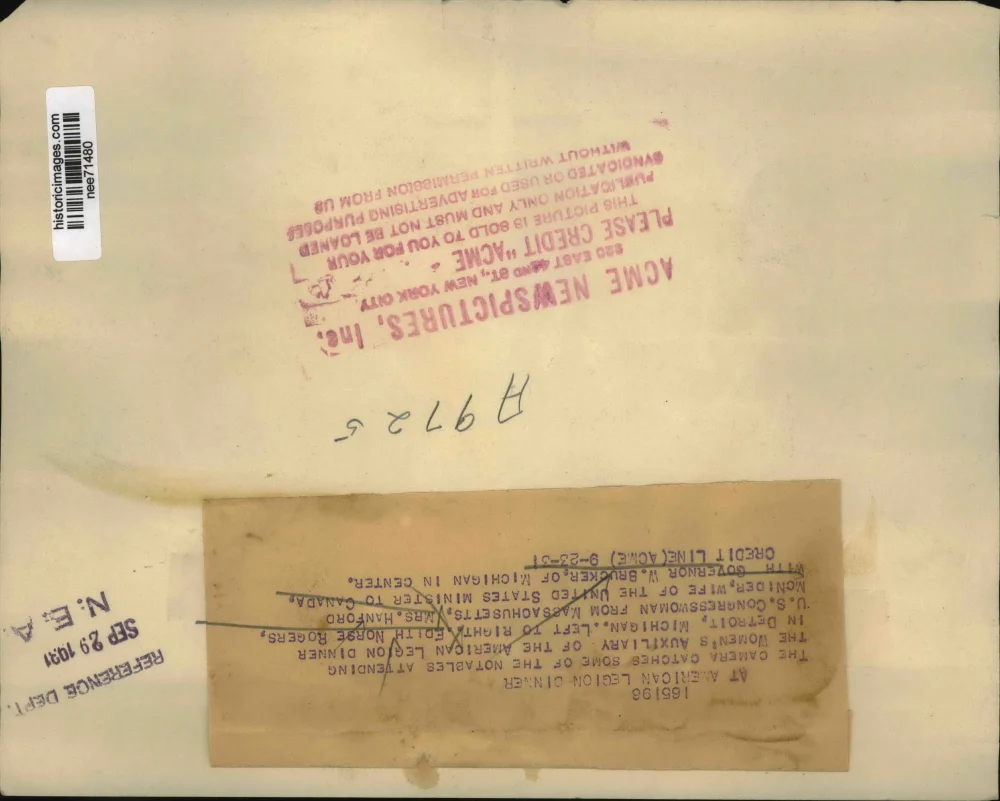 historicimages.com
nee71480
ACME NEWSPICTURES, Inc.
220 EAST 42ND ST., NEW YORK CITY
PLEASE CREDIT "ACME
THIS PICTURE IS SOLD TO YOU FOR YOUR
PUBLICATION ONLY AND MUST NOT BE LOANED
SYNDICATED OR USED FOR ADVERTISING PURPOSES
WITHOUT WRITTEN PERMISSION FROM US
A9725
165196
AT AMERICAN LEGION DINNER
THE CAMERA CATCHES SOME OF THE NOTABLES ATTENDING
THE WOMEN'S AUXILIARY OF THE AMERICAN LEGION DINNER
IN DETROIT, MICHIGAN.. LEFT TO RIGHT, EDITH NORSE ROGERS,
U.S. CONGRESSWOMAN FROM MASSACHUSETTS, MRS. HANFORD
MCNIDER, WIFE OF THE UNITED STATES MINISTER TO CANADA,
WITH GOVERNOR W. BRUCKER, OF MICHIGAN IN CENTER.
CREDIT LINE (ACME) 9-23-31
REFERENCE DEPT.
SEP 29 1931
N. E. A